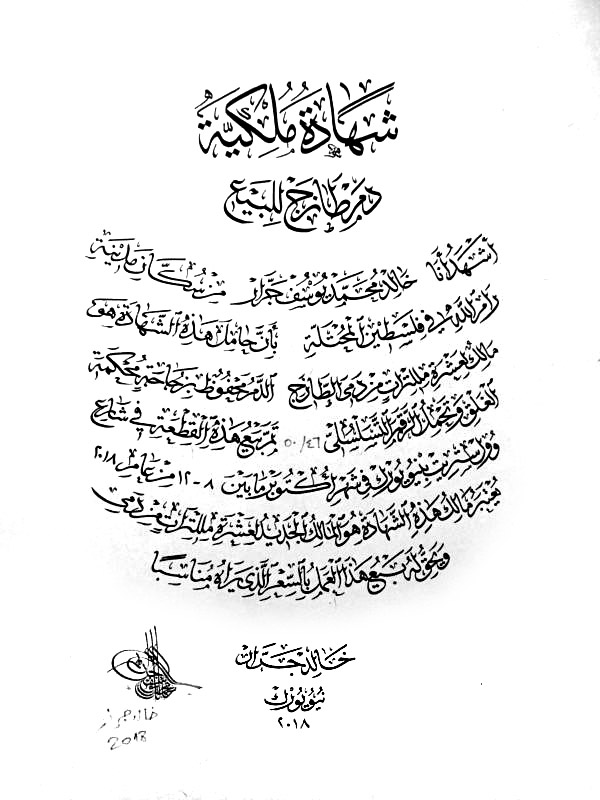 شهادة ملكية
دم طازج للبيع
أشهد أنا خالد محمد يوسف جرار من سكان مدينة
رام الله في فلسطين المحتلة بأن حامل هذه الشهادة هو
مالك لعشرة مللترات من دمي الطازج الدم محفوظ بزجاجة محكمة
الغلق وتحمل الرقم التسلسلي ٥٠/٤٦ تم بيع هذه القطعة في شارع
وول ستريت بنيويورك في شهر أكتوبر ما بين ٨-١٢ من عام ٢٠١٨
يعتبر مالك هذه الشهادة هو المالك الجديد لعشرة مللترات من دمي
ويحق له بيع هذا العمل بالسعر الذي يراه مناسبا
خالد جرار
نيويورك
٢٠١٨
خالد جرار
2018